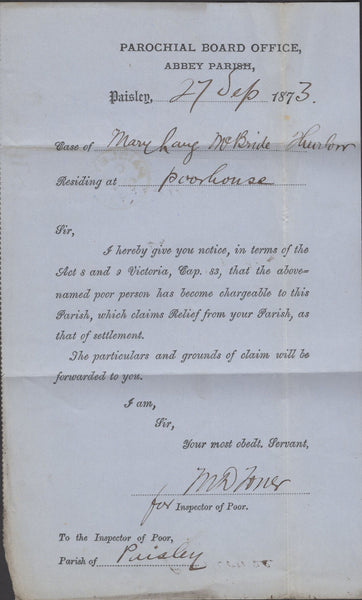 PAROCHIAL BOARD OFFICE,
ABBEY PARISH,
Paisley, 27 Sep 1873.
Case of Mary Lang McBride
Residing at Poorhouse
Sir,
I hereby give you notice, in terms of the
Act 8 and 9 Victoria, Cap. 83, that the above-
named poor person has become chargeable to this
Parish, which claims Relief from your Parish, as
that of settlement.
The particulars and grounds of claim will be
forwarded to you.
I am,
Sir,
Your most obedt. Servant,
for Inspector of Poor.
To the Inspector of Poor,
Parish of Paisley